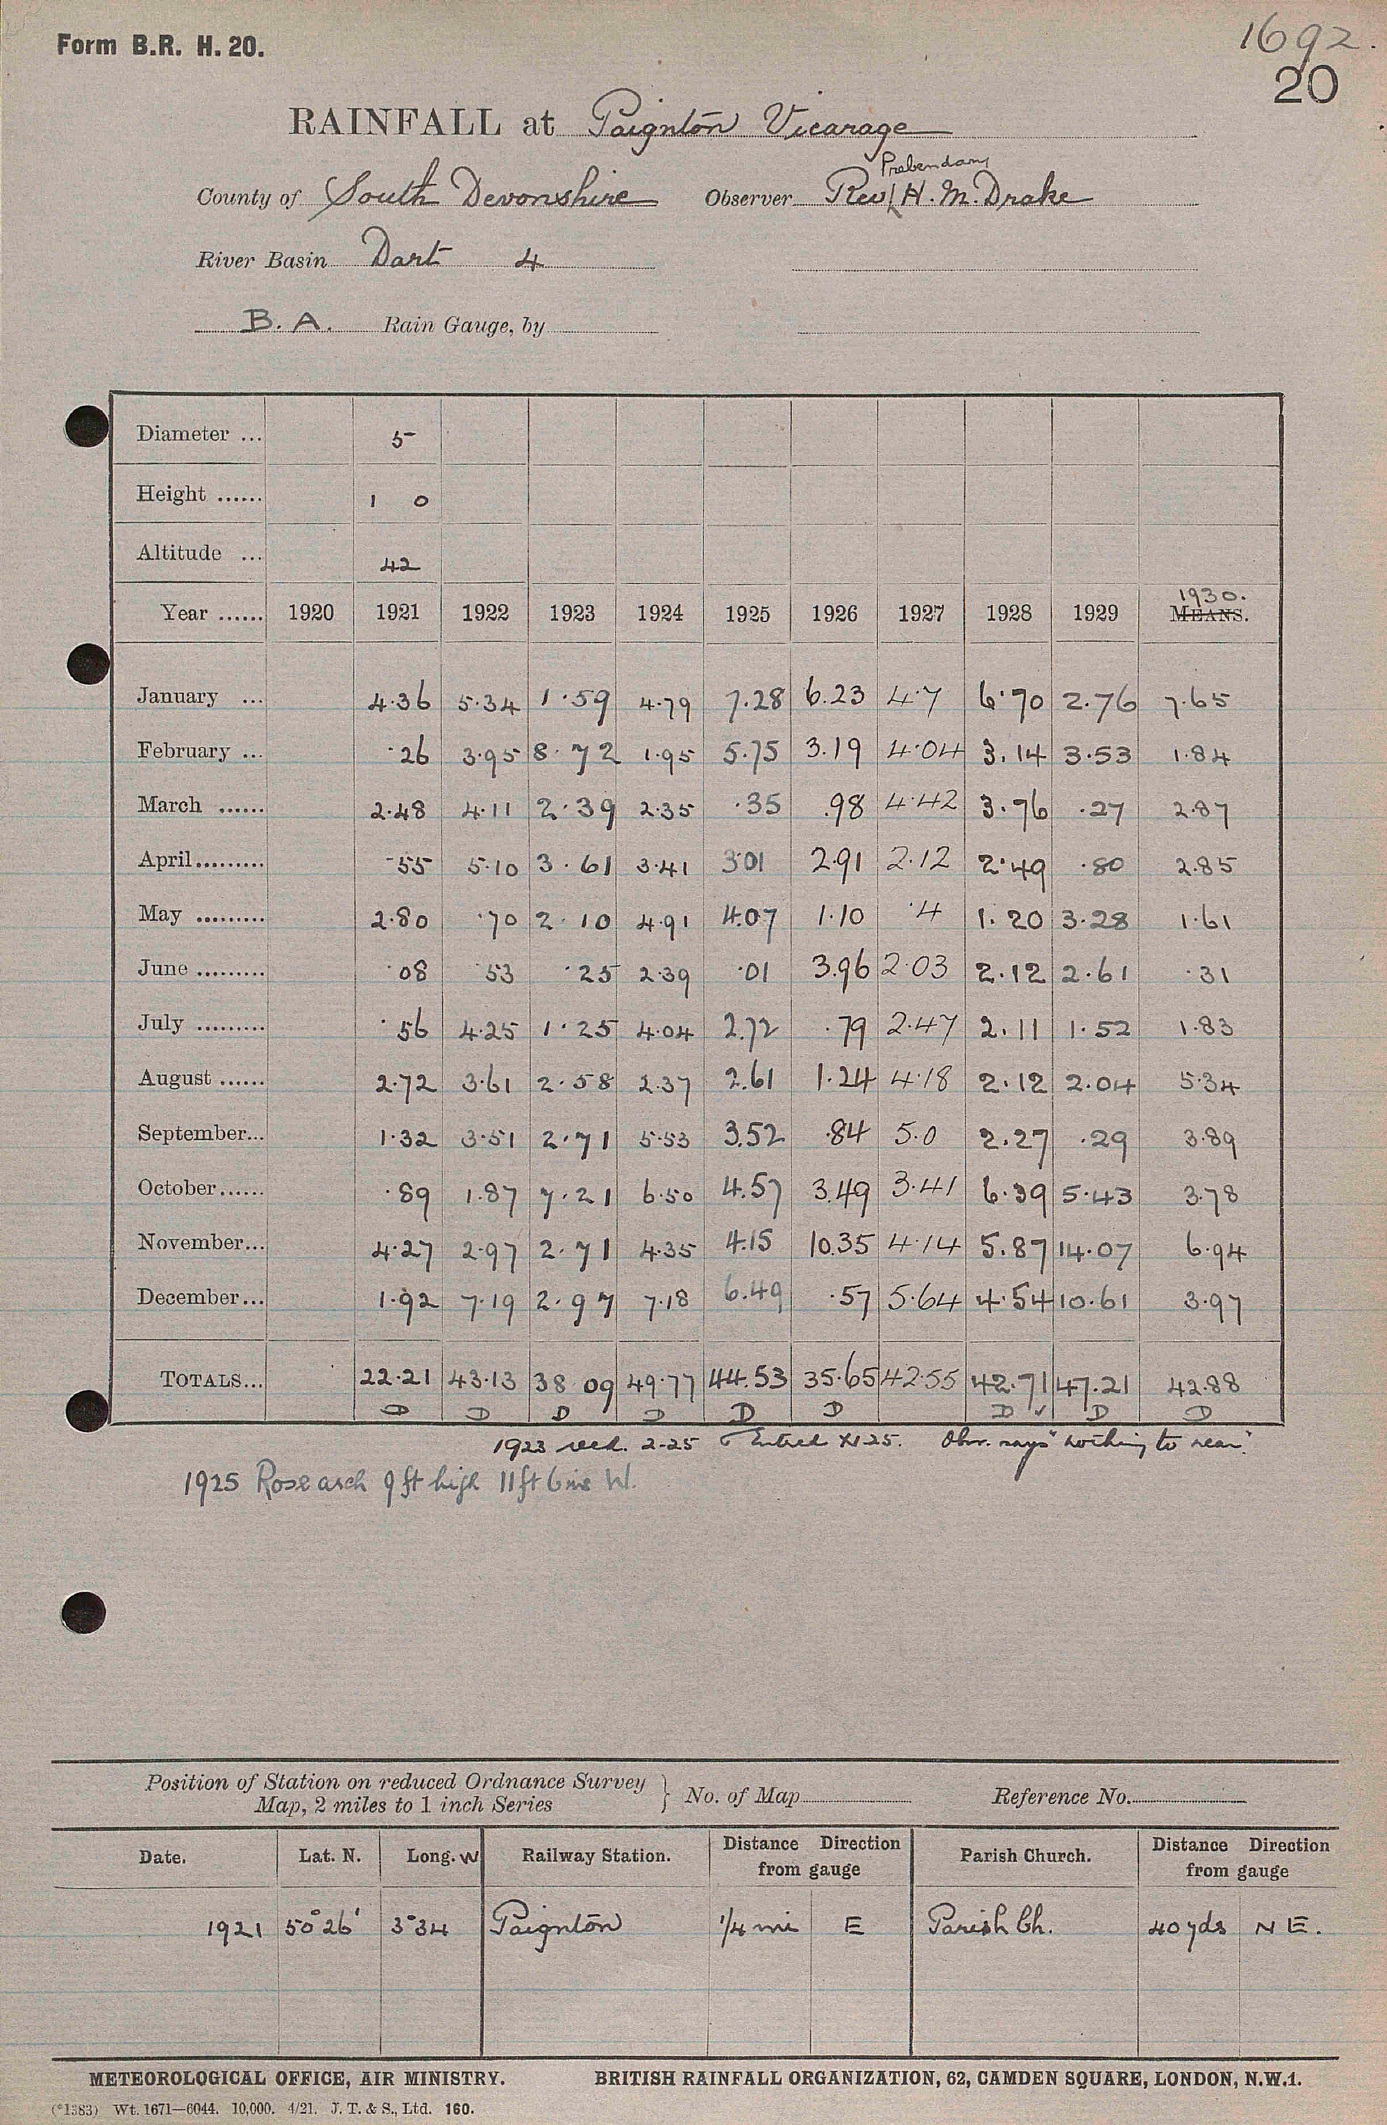 Form B.R. H. 20.
1692.
20
RAINFALL at Paignton Vicarage
Prebendary
County of South Devonshire Observer Rev H. M. Drake
River Basin Dart 4
B. A. Rain Gauge, by
Diameter ... 5
Height ...... 1 0
Altitude ... 42
1930.
Year ...... 1920 1921 1922 1923 1924 1925 1926 1927 1928 1929 MEANS.
January ... 4.36 5.34 1.59 4.79 7.28 6.23 4.7 6.70 2.76 7.65
February ... .26 3.95 8.72 1.95 5.75 3.19 4.04 3.14 3.53 1.84
March ...... 2.48 4.11 2.39 2.35 .35 .98 4.42 3.76 .27 2.87
April......... .55 5.10 3.61 3.41 3.01 2.91 2.12 2.49 .80 2.85
May ......... 2.80 .70 2.10 4.91 4.07 1.10 .4 1.20 3.28 1.61
June ......... .08 .53 .25 2.39 .01 3.96 2.03 2.12 2.61 .31
July ......... .56 4.25 1.25 4.04 2.72 .79 2.47 2.11 1.52 1.83
August ...... 2.72 3.61 2.58 2.37 2.61 1.24 4.18 2.12 2.04 5.34
September... 1.32 3.51 2.71 5.53 3.52 .84 5.0 2.27 .29 3.89
October...... .89 1.87 7.21 6.50 4.57 3.49 3.41 6.39 5.43 3.78
November... 4.27 2.97 2.71 4.35 4.15 10.35 4.14 5.87 14.07 6.94
December... 1.92 7.19 2.97 7.18 6.49 .57 5.64 4.54 10.61 3.97
TOTALS... 22.21 43.13 38 09 49.77 44.53 35.65 42.55 42.71 47.21 42.88
D D D D D D D ✓ D D
1923 recd. 2-25 Entred XI.25. Obsr. says "nothing to near."
1925 Rose arch 9 ft high 11 ft 6 ins W.
Position of Station on reduced Ordnance Survey
Map, 2 miles to 1 inch Series } No. of Map Reference No.
Date. Lat. N. Long. W Railway Station. Distance Direction from gauge Parish Church. Distance Direction from gauge
1921 50° 26' 3° 34 Paignton 1/4 mi E Parish Ch. 40 yds N E.
METEOROLOGICAL OFFICE, AIR MINISTRY. BRITISH RAINFALL ORGANIZATION, 62, CAMDEN SQUARE, LONDON, N.W.1.
(*1383) Wt. 1671—6044. 10,000. 4/21. J. T. & S., Ltd. 160.